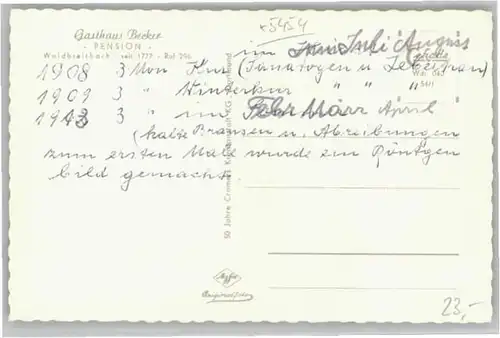 +5454
Gasthaus Becker
- PENSION -
Waldbreitbach seit 1777 - Ruf 296
im Juni Juli August
1908 3 Mon Kur (Sanatogen u. Lebertran)
1909 3 " Winterkur " "
1943 3 " im Febr März April "
(kalte Brausen u. Abreibungen
zum ersten Male wurde ein Röntgen
bild gemacht.
50 Jahre Cramers Kunstanstalt KG Dortmund
Agfa
23,-